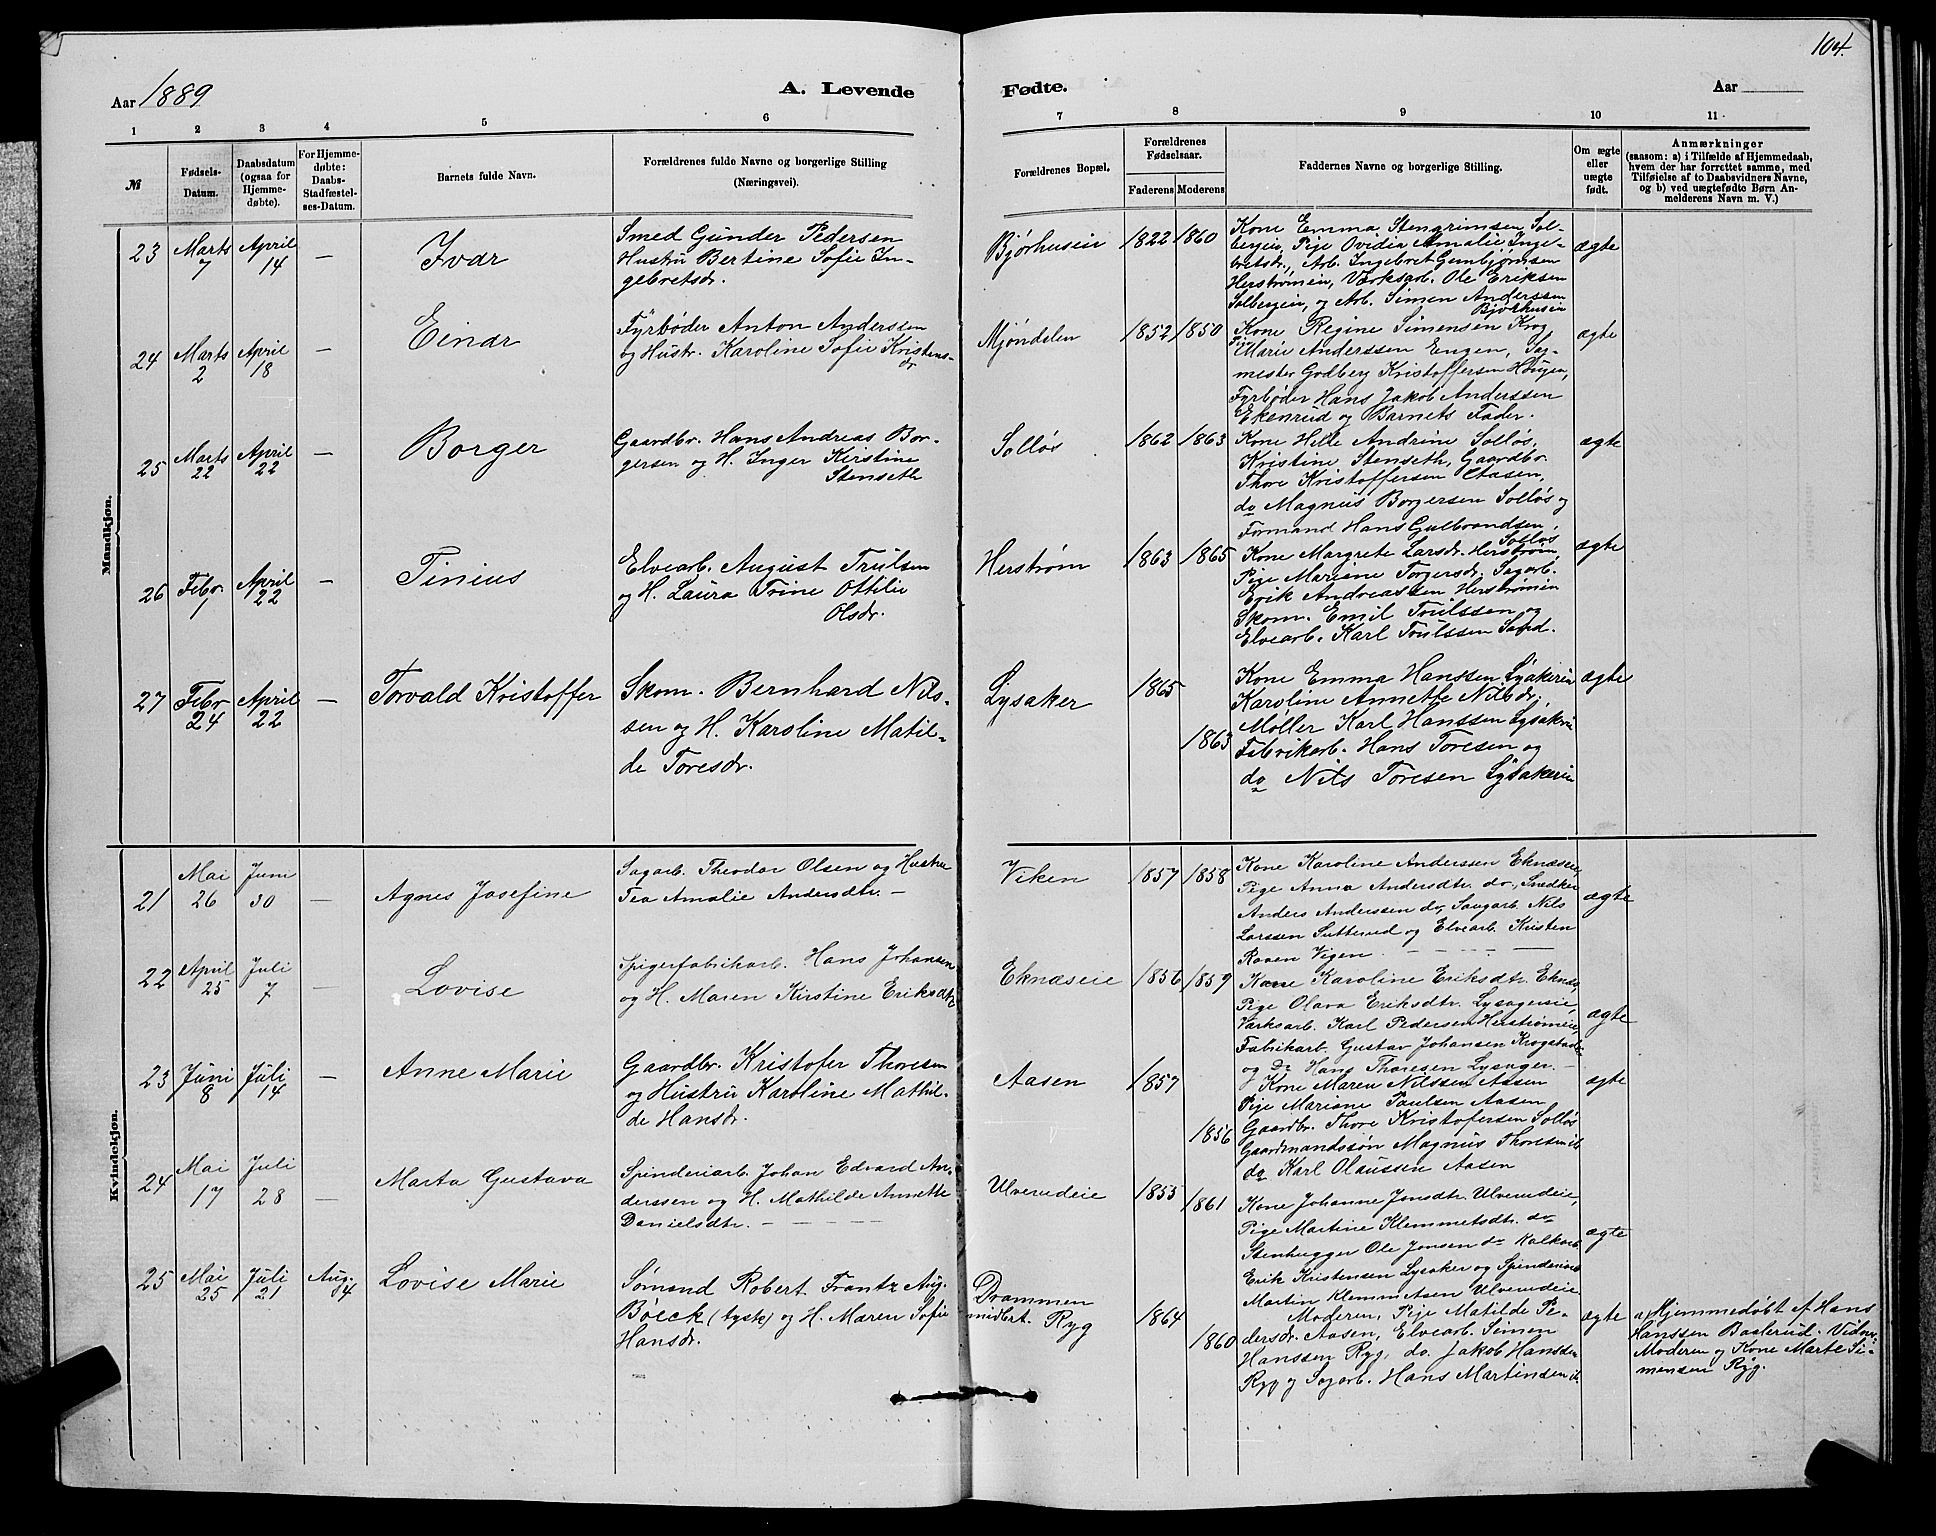 104.
Aar 1889
A. Levende
Fødte.
Aar
1 2 3 4 5 6 7 8 9 10 11
№
Fødsels-
Datum.
Daabsdatum
(ogsaa for
Hjemme-
døbte).
For Hjemme-
døbte:
Daabs-
Stadfæstel-
ses-Datum.
Barnets fulde Navn.
Forældrenes fulde Navne og borgerlige Stilling
(Næringsvei).
Forældrenes Bopæl.
Forældrenes
Fødselsaar.
Faderens Moderens
Faddernes Navne og borgerlige Stilling.
Om ægte
eller
uægte
født.
Anmærkninger
(saasom: a) i Tilfælde af Hjemmedaab,
hvem der har forrettet samme, med
Tilføielse af to Daabsvidners Navne,
og b) ved uægtefødte Børn An-
melderens Navn m. V.)
Mandkjøn.
23 Marts 7 April 14 — Ivar
Smed Gunder Pedersen
Hustru Bertine Sofie In-
gebretsdr.
Bjørhuseie 1822 1860
Kone Emma Stengrimsen Sol-
bergeie, Pige Ovidia Amalie Inge-
bretsdr., Arb. Ingebret Gunbjørnsen
Herstrømeie, Værksarb. Ole Eriksen
Solbergeie, og Arb. Simen Anderssen
Bjørhuseie
ægte
24 Marts 2 April 18 — Einar
Fyrbøder Anton Anderssen
og Hustr. Karoline Sofie Kristens-
dr
Mjøndelen 1852 1850
Kone Regine Simensen Krog,
Pige Marie Anderssen Engen, Sag-
mester Godberg Kristoffersen Hougen,
Fyrbøder Hans Jakob Anderssen
Ekenrud og Barnets Fader.
ægte
25 Marts 22 April 22 — Borger
Gaardbr. Hans Andreas Bor-
gersen og H. Inger Kirstine
Stenseth
Solløs 1862 1863
Kone Helle Andrine Solløs,
Kristine Stenseth, Gaardbr.
Thore Kristoffersen Aasen,
do Magnus Borgersen Solløs og
Formand Hans Gulbrandsen,
Solløs
ægte
26 Febr. 1 April 22 — Tinius
Elvearb. August Trulsen
og H. Laura Trine Ottilie
Olsdr.
Herstrøm 1863 1865
Kone Margrete Larsdr. Herstrøm,
Pige Mariane Torgersdr. Sagarb.
Erik Andreassen Herstrømeie
Skom. Emil Trulssen og
Elvearb. Karl Trulssen Sand.
ægte
27 Febr 24 April 22 — Torvald Kristoffer
Skom. Bernhard Nils-
sen og H. Karoline Matil-
de Toresdr.
Lysaker 1865 1863
Kone Emma Hanssen Lysakerie
Karoline Annette Nilsdr,
Møller Karl Hanssen Lysakrie
Fabrikarb. Hans Toresen og
do Nils Toresen Lysakerie
ægte
Kvindekjøn.
21 Mai 26 Juni 30 — Agnes Josefine
Sagarb. Theodor Olsen og Hustru
Tea Amalie Andersdtr. —
Viken 1857 1858
Kone Karoline Anderssen Eknæseie,
Pige Anna Andersdtr. do, Snedker
Anders Anderssen do, Saugarb. Nils
Larssen Sutterud og Elvearb. Kristen
Raaen Vigen.
ægte
22 April 25 Juli 7 — Lovise
Spigerfabrikarb. Hans Johansen
og H. Maren Kirstine Eriksdtr
Eknæseie 1856 1859
Kone Karoline Eriksdtr. Eknæs,
Pige Olava Eriksdtr. Lysagereie,
Værksarb. Karl Pedersen Herstrømeie,
Fabrikarb. Gustav Johansen Krogstad
og do Hans Thoresen Lysager. —
ægte
23 Juni 8 Juli 14 — Anne Marie
Gaardbr. Kristofer Thoresen
og Hustru Karoline Mathil-
de Hansdr.
Aasen 1857 1856
Kone Maren Nilssen Aasen
Pige Mariane Paulsen Aasen
Gaardbr. Thore Kristofersen Solløs
Gaardmandssøn Magnus Thoresen ib
do Karl Olaussen Aasen
ægte
24 Mai 17 Juli 28 — Marta Gustava
Spinderiarb. Johan Edvard An-
derssen og H. Mathilde Annette
Danielsdtr. —
Ulverudeie 1855 1861
Kone Johanne Jonsdtr. Ulverudeie,
Pige Martine Klemmetsdtr. do
Stenhugger Ole Jonsen do Kalkarb.
Erik Kristensen Lysaker og Spinderiarb
Martin Klemmetsen Ulverudeie
ægte
25 Mai 25 Juli 21 Aug. 4 Lovise Marie
Sømand Robert Frantz Aug.
Böeck (tysk) og H. Maren Sofie
Hansdr.
Drammen
midlert. Ryg
1864 1860
Moderen, Pige Matilde Pe-
dersdr. Aasen, Elvearb. Simen
Hanssen Ryg, do. Jakob Hanssen
Ryg og Sagarb. Hans Martinsen ib.
ægte
a, Hjemmedøbt af Hans
Hanssen Baslerud. Vidner
Moderen og Kone Marte Si-
mensen Ryg.